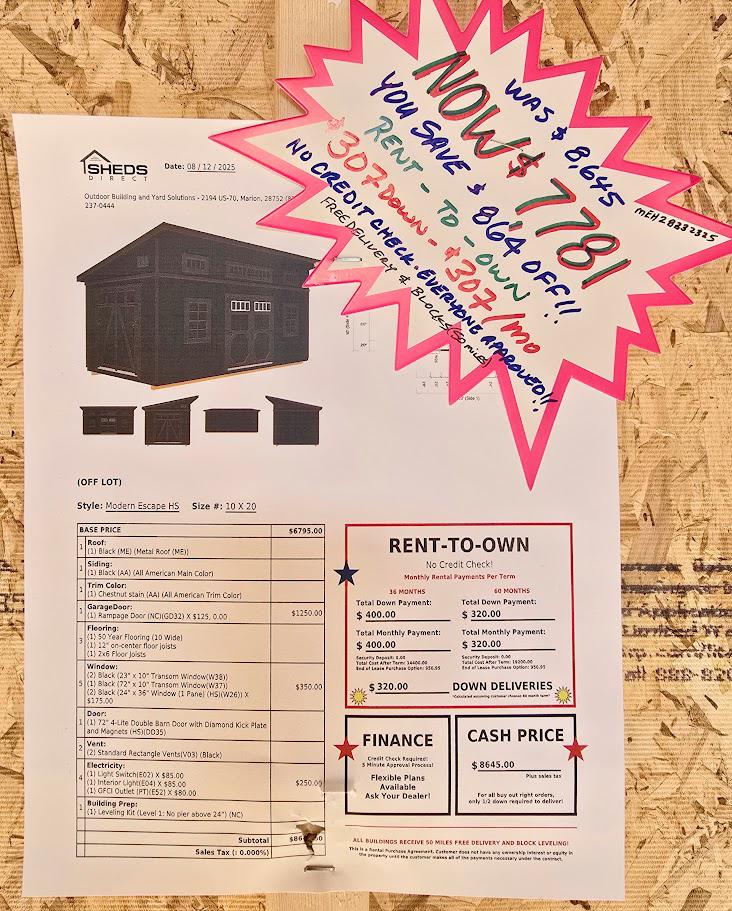 WAS $ 8,645
NOW $ 7781
YOU SAVE $ 864 OFF!!
RENT - TO - OWN
307 DOWN - $307/mo
NO CREDIT CHECK · EVERYONE APPROVED!!
FREE DELIVERY & BLOCKS (50 miles)
MEH28232325
SHEDS
DIRECT
Date: 08 / 12 / 2025
Outdoor Building and Yard Solutions - 2194 US-70, Marion, 28752
237-0444
(OFF LOT)
Style: Modern Escape HS Size #: 10 X 20
BASE PRICE $6795.00
1 Roof:
(1) Black (ME) (Metal Roof (ME))
1 Siding:
(1) Black (AA) (All American Main Color)
1 Trim Color:
(1) Chestnut stain (AA) (All American Trim Color)
1 GarageDoor:
(1) Rampage Door (NC)(GD32) X $125, 0.00 $1250.00
3 Flooring:
(1) 50 Year Flooring (10 Wide)
(1) 12" on-center floor joists
(1) 2x6 Floor Joists
5 Window:
(2) Black (23" x 10" Transom Window(W38))
(1) Black (72" x 10" Transom Window(W37))
(2) Black (24" x 36" Window (1 Pane) (HS)(W26)) X
$175.00 $350.00
1 Door:
(1) 72" 4-Lite Double Barn Door with Diamond Kick Plate
and Magnets (HS)(DD35)
2 Vent:
(2) Standard Rectangle Vents(V03) (Black)
4 Electricity:
(1) Light Switch(E02) X $85.00
(1) Interior Light(E04) X $85.00
(1) GFCI Outlet (PT)(E52) X $80.00 $250.00
1 Building Prep:
(1) Leveling Kit (Level 1: No pier above 24") (NC)
Subtotal
Sales Tax (: 0.000%)
RENT-TO-OWN
No Credit Check!
Monthly Rental Payments Per Term
36 MONTHS 60 MONTHS
Total Down Payment: Total Down Payment:
$ 400.00 $ 320.00
Total Monthly Payment: Total Monthly Payment:
$ 400.00 $ 320.00
Security Deposit: 0.00 Security Deposit: 0.00
Total Cost After Term: 14400.00 Total Cost After Term: 19200.00
End of Lease Purchase Option: 950.95 End of Lease Purchase Option: 950.95
$ 320.00 DOWN DELIVERIES
*Calculated assuming customer chooses 60 month term*
FINANCE
Credit Check Required!
5 Minute Approval Process!
Flexible Plans
Available
Ask Your Dealer!
CASH PRICE
$ 8645.00
Plus sales tax
For all buy out right orders,
only 1/2 down required to deliver!
ALL BUILDINGS RECEIVE 50 MILES FREE DELIVERY AND BLOCK LEVELING!
This is a Rental Purchase Agreement. Customer does not have any ownership interest or equity in
the property until the customer makes all of the payments necessary under the contract.